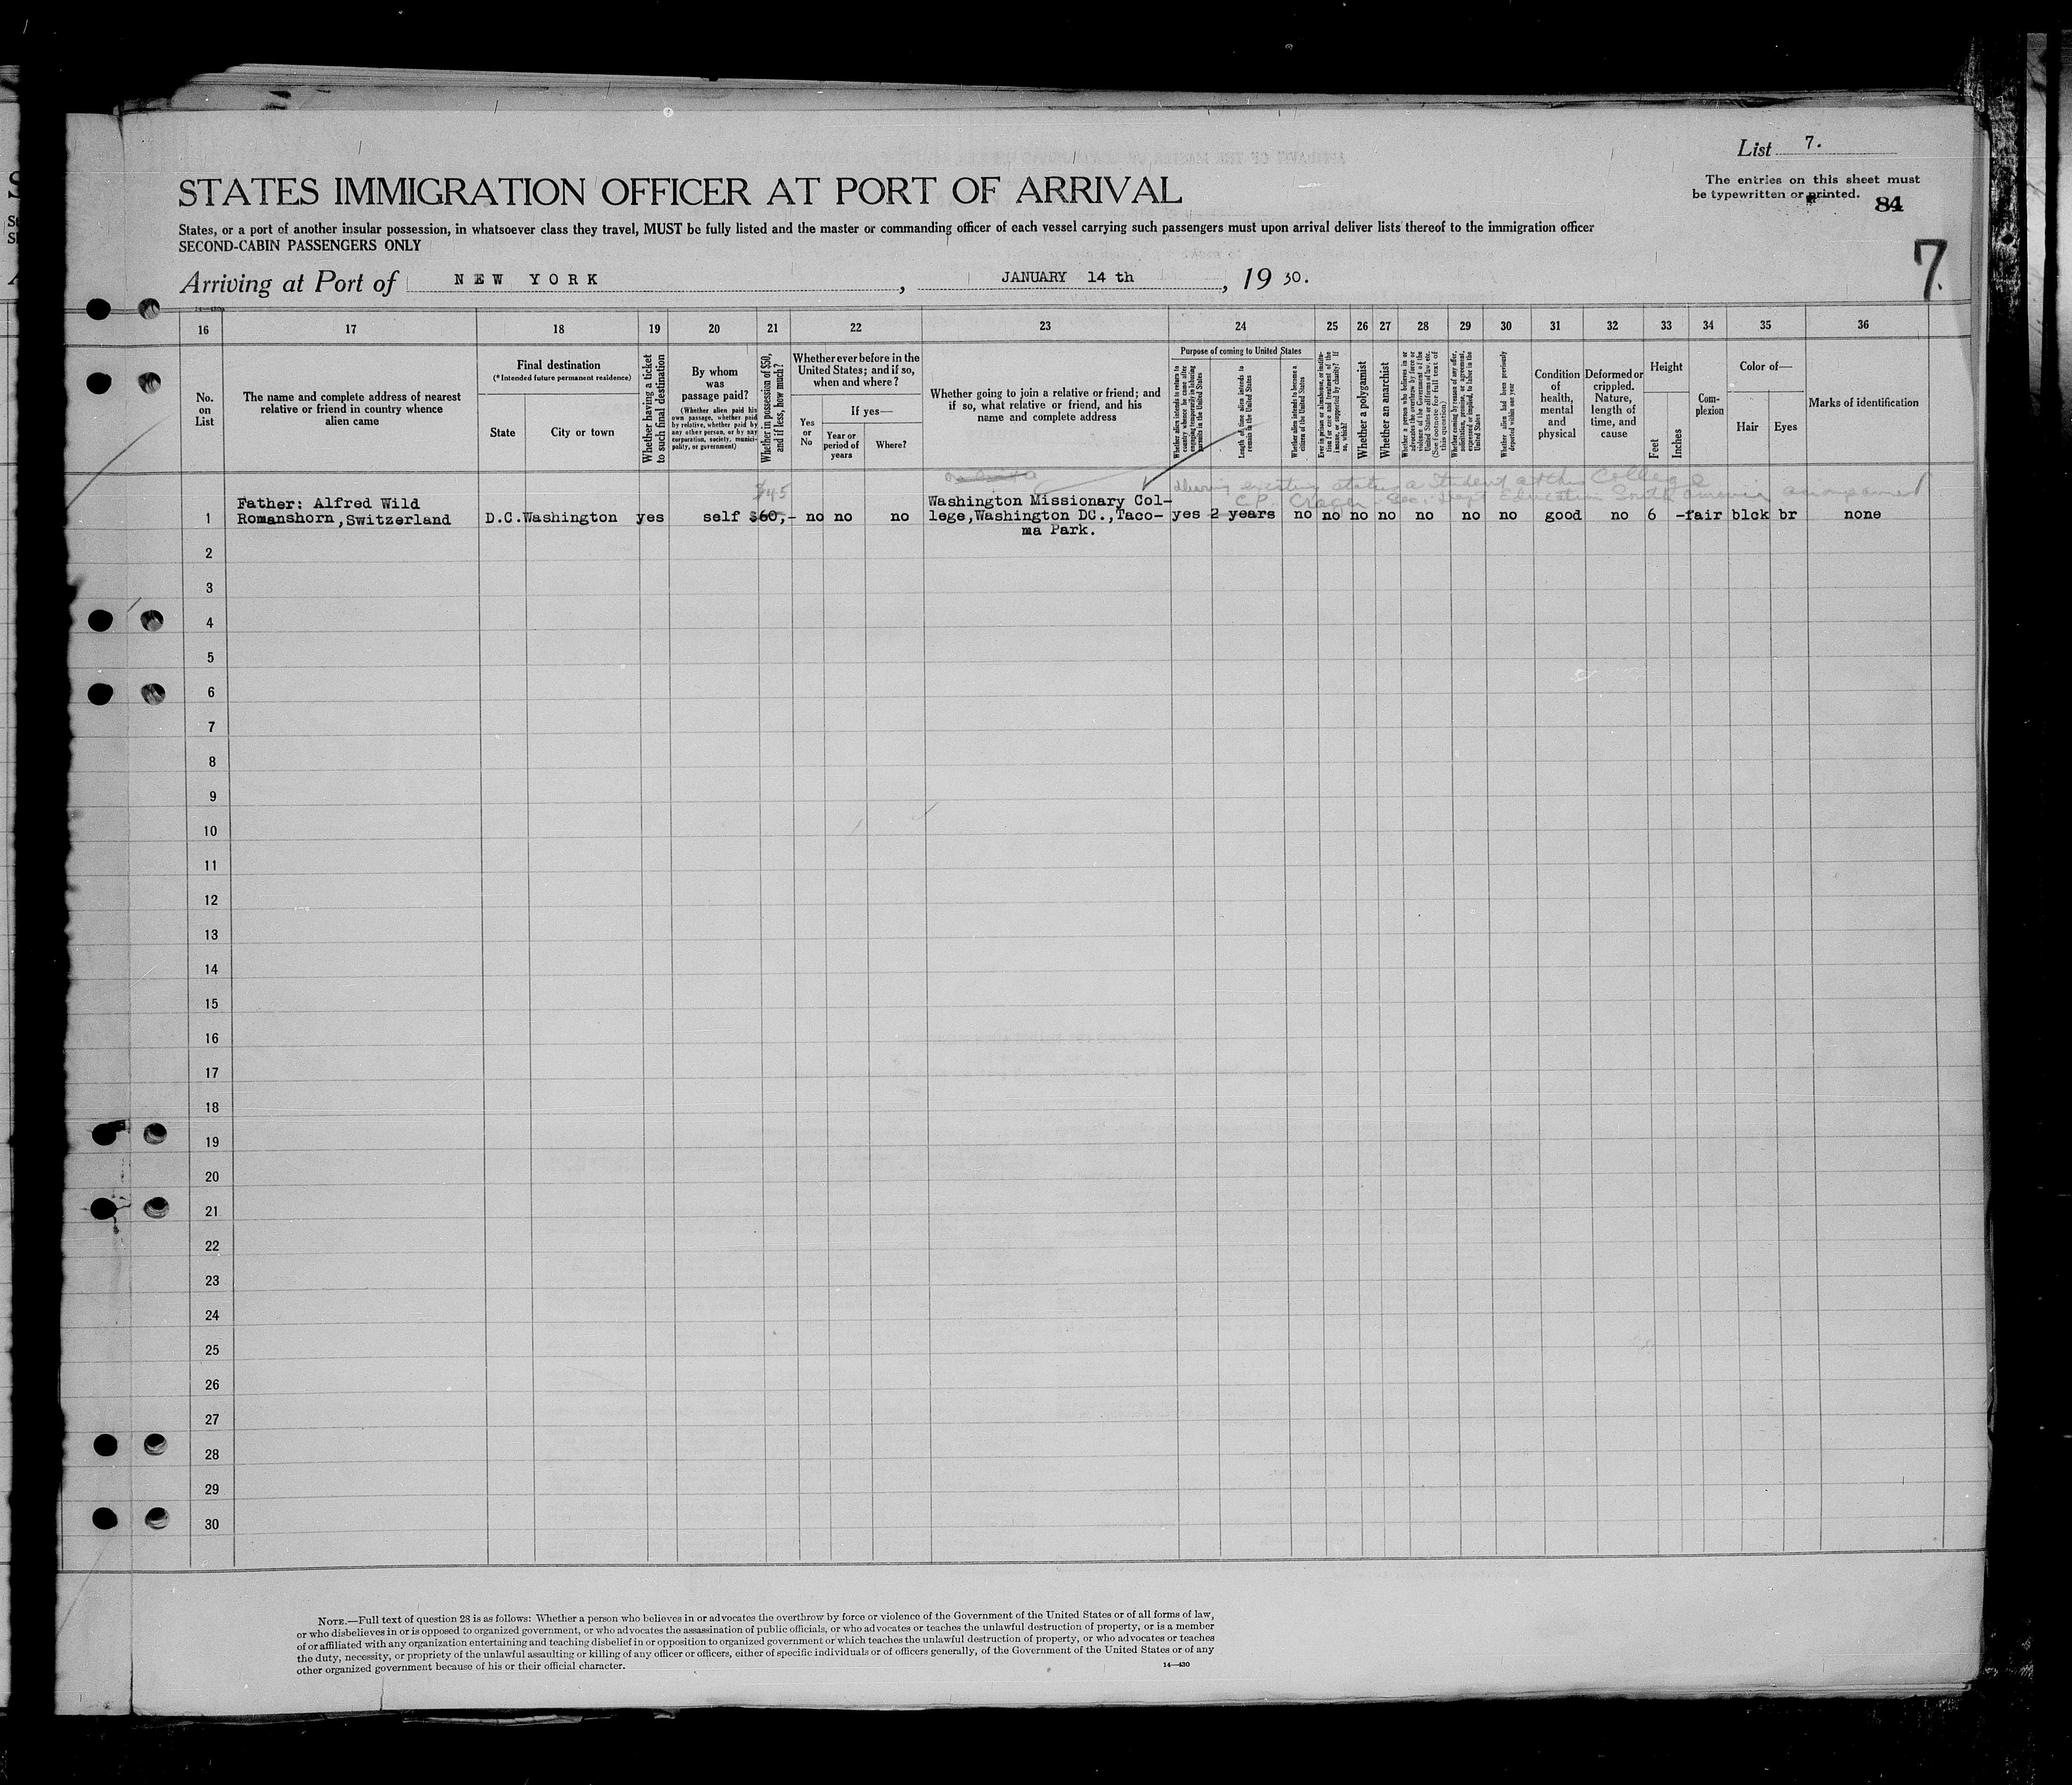 List 7.
The entries on this sheet must
be typewritten or printed.
84
7.
STATES IMMIGRATION OFFICER AT PORT OF ARRIVAL
States, or a port of another insular possession, in whatsoever class they travel, MUST be fully listed and the master or commanding officer of each vessel carrying such passengers must upon arrival deliver lists thereof to the immigration officer
SECOND-CABIN PASSENGERS ONLY
Arriving at Port of NEW YORK, JANUARY 14 th, 19 30.
16 17 18 19 20 21 22 23 24 25 26 27 28 29 30 31 32 33 34 35 36
No.
on
List
The name and complete address of nearest
relative or friend in country whence
alien came
Final destination
(*Intended future permanent residence)
State
City or town
Whether having a ticket
to such final destination
By whom
was
passage paid?
(Whether alien paid his
own passage, whether paid
by relative, whether paid by
any other person, or by any
corporation, society, munici-
pality, or government)
Whether in possession of $50,
and if less, how much?
Whether ever before in the
United States; and if so,
when and where?
Yes
or
No
If yes—
Year or
period of
years
Where?
Whether going to join a relative or friend; and
if so, what relative or friend, and his
name and complete address
Purpose of coming to United States
Whether alien intends to return to
country whence he came after
engaging temporarily in laboring
pursuits in the United States
Length of time alien intends to
remain in the United States
Whether alien intends to become a
citizen of the United States
Ever in prison or almshouse, or institu-
tion for care and treatment of the
insane, or supported by charity? If
so, which?
Whether a polygamist
Whether an anarchist
Whether a person who believes in or
advocates the overthrow by force or
violence of the Government of the
United States or all forms of law, etc.
(See footnote for full text of
this question)
Whether coming by reason of any offer,
solicitation, promise, or agreement,
expressed or implied, to labor in the
United States
Whether alien had been previously
deported within one year
Condition
of
health,
mental
and
physical
Deformed or
crippled.
Nature,
length of
time, and
cause
Height
Feet
Inches
Com-
plexion
Color of—
Hair
Eyes
Marks of identification
$45
a Student at this College
C.P. Crager - Sec. Dept Education South America accompanied
Father: Alfred Wild
Washington Missionary Col-
1 Romanshorn, Switzerland D.C. Washington yes self $60,- no no no lege, Washington DC., Taco- yes 2 years no no no no no no no good no 6 - fair blck br none
ma Park.
2
3
4
5
6
7
8
9
10
11
12
13
14
15
16
17
18
19
20
21
22
23
24
25
26
27
28
29
30
NOTE.—Full text of question 28 is as follows: Whether a person who believes in or advocates the overthrow by force or violence of the Government of the United States or of all forms of law,
or who disbelieves in or is opposed to organized government, or who advocates the assassination of public officials, or who advocates or teaches the unlawful destruction of property, or is a member
of or affiliated with any organization entertaining and teaching disbelief in or opposition to organized government or which teaches the unlawful destruction of property, or who advocates or teaches
the duty, necessity, or propriety of the unlawful assaulting or killing of any officer or officers, either of specific individuals or of officers generally, of the Government of the United States or of any
other organized government because of his or their official character.
14—430